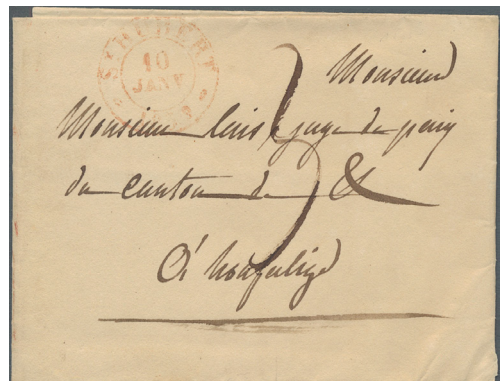 ST HUBERT
10
JANV
Monsieur
Monsieur le juge de paix
du canton de &
à houffalize